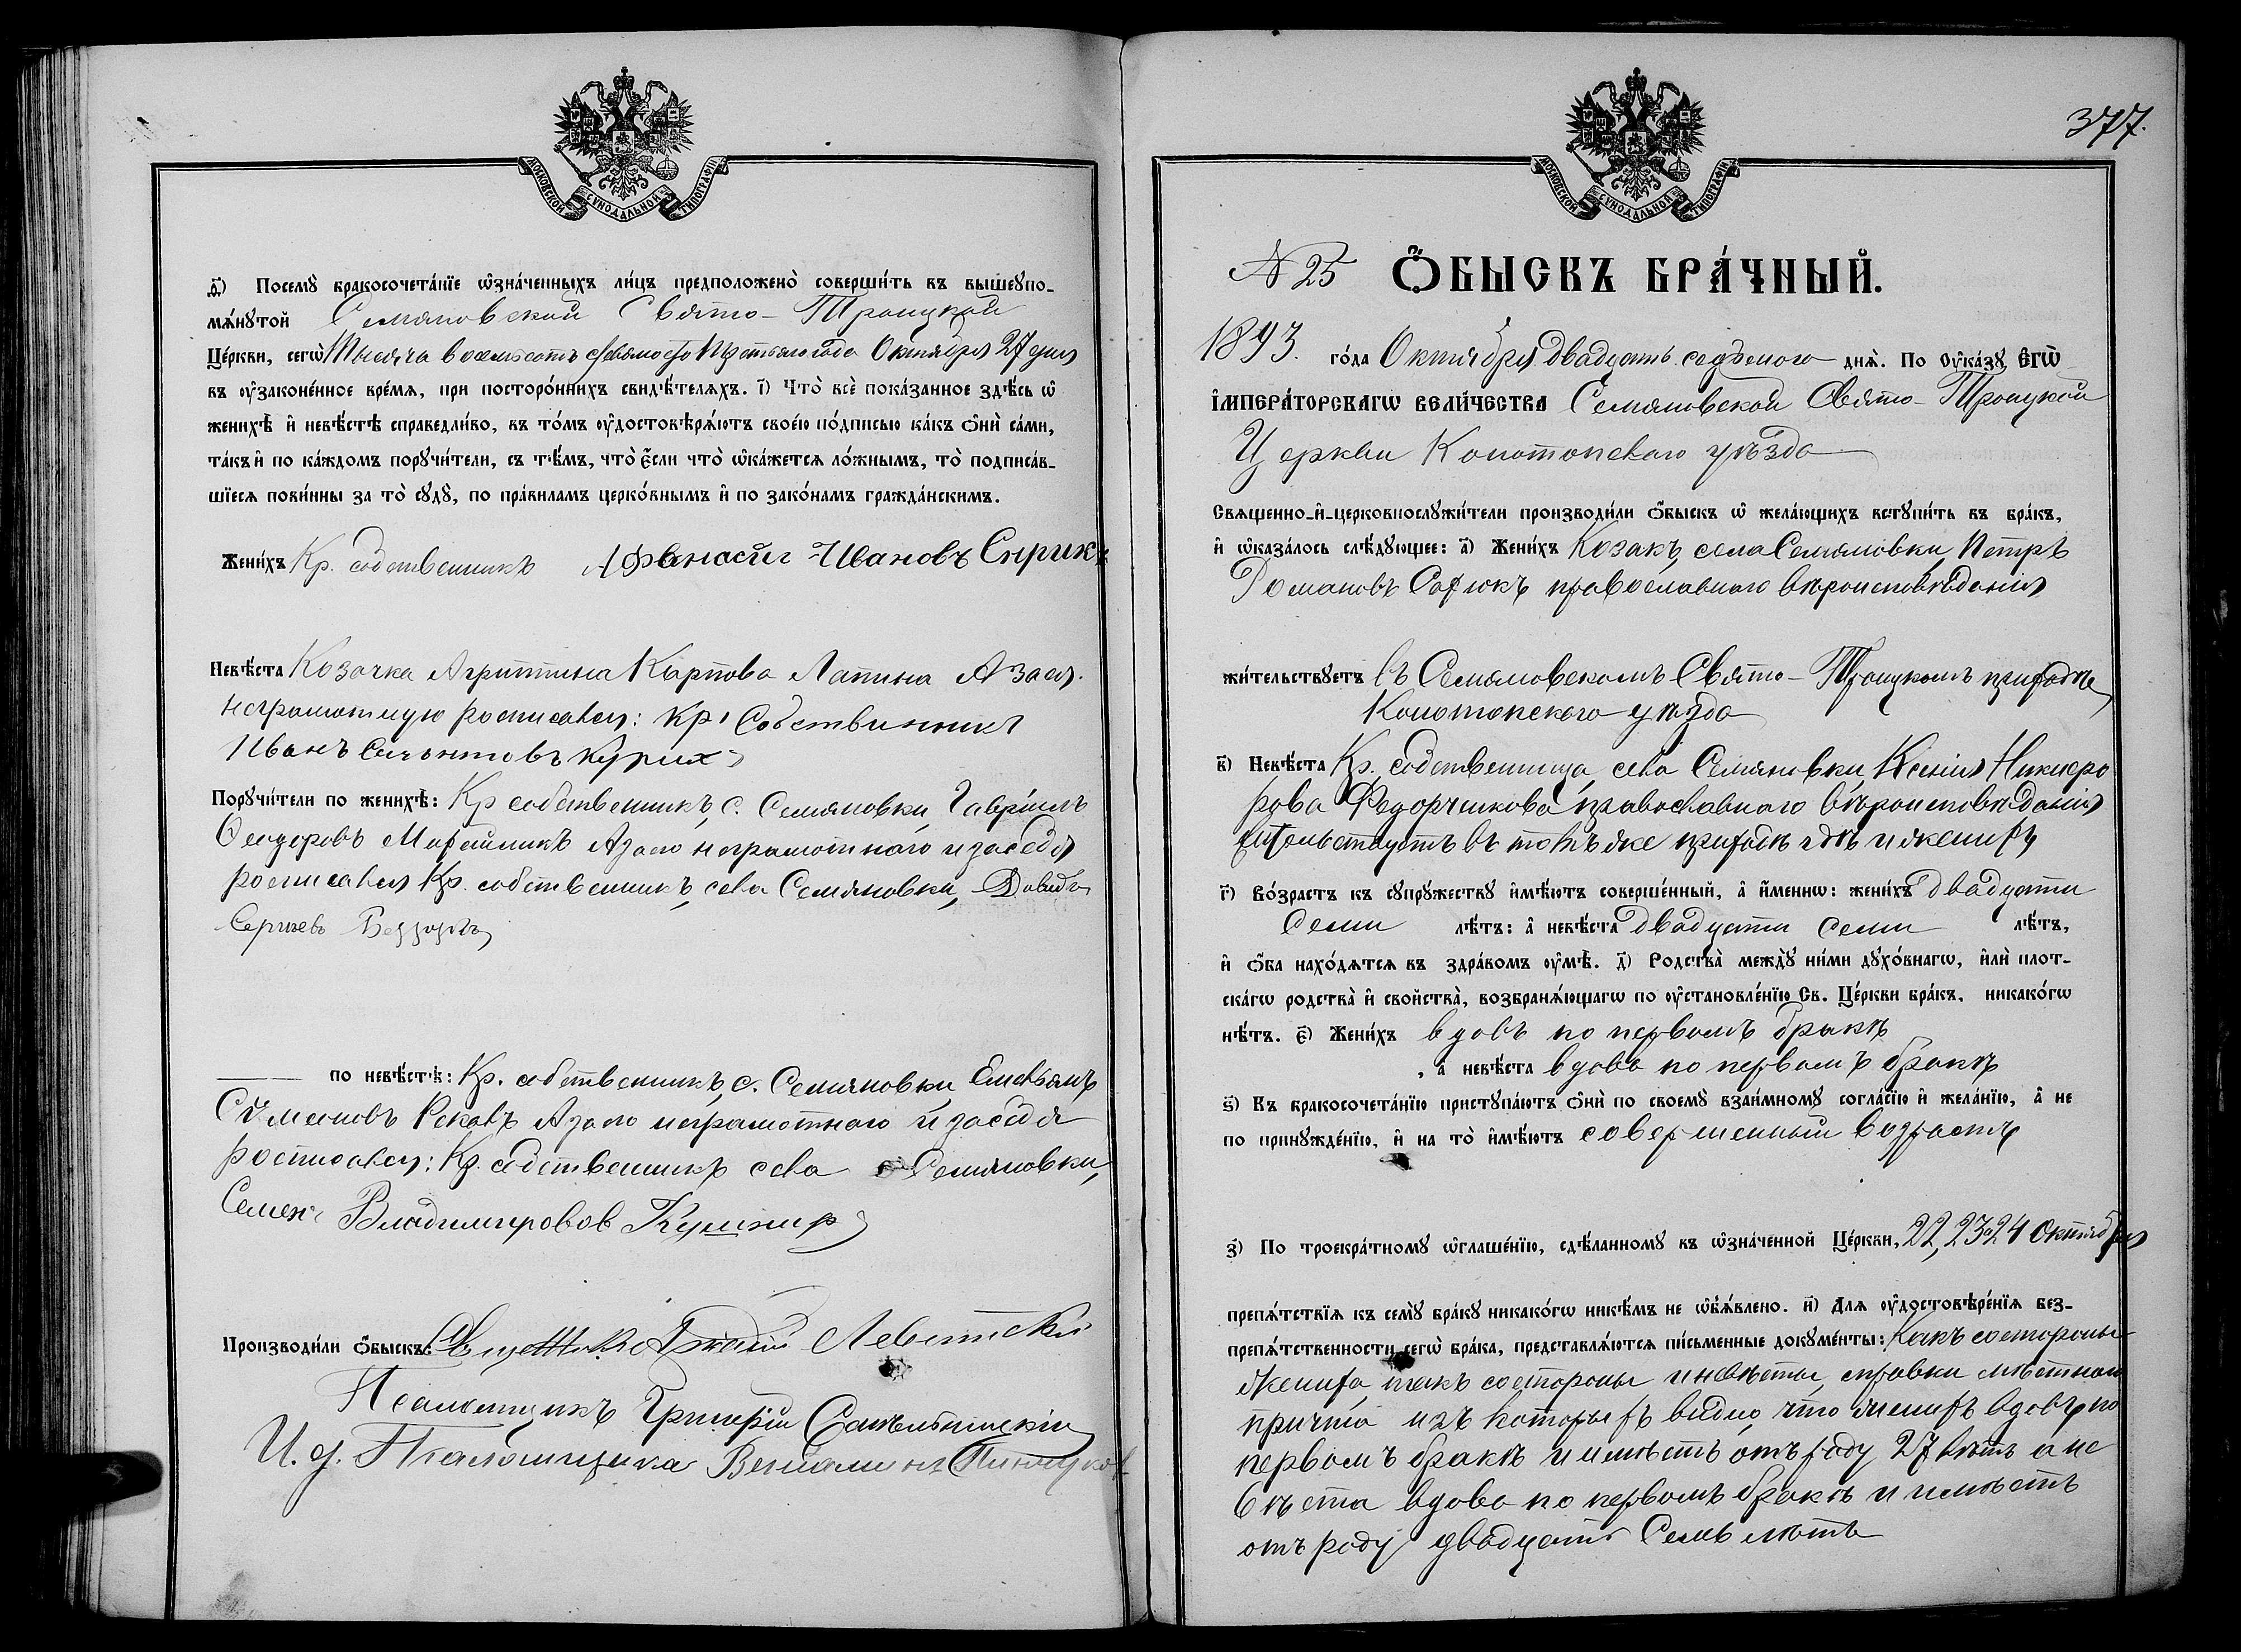 МОСКОВСКОЙ СѴНОДАЛЬНОЙ ТИПОГРАФІИ
д҃і) Посемꙋ̀ бракосочета́нїе ѡ҆зна́ченныхъ ли́цъ предположено̀ соверши́ть въ вышеꙋпо-
мѧ́нꙋтой Семяновской Свято-Троицкой
Це́ркви, сегѡ̀ Тысяча восемьсотъ девяносто третьяго года Октября 27 дня
въ ᲂу҆законе́нное вре́мѧ, при посторо́ннихъ свидѣ́телѧхъ. і҃) Что̀ всѐ пока́занное здѣ́сь ѡ҆
женихѣ̀ и҆ невѣ́стѣ справедли́во, въ то́мъ ᲂу҆достовѣрѧ́ютъ свое́ю по́дписью ка́къ ѻ҆нѝ са́ми,
та́къ и҆ по ка́ждомъ порꙋчи́тели, съ тѣ́мъ, что̀ є҆́сли что̀ ѡ҆ка́жетсѧ ло́жнымъ, то̀ подписа́в-
шїесѧ пови́нны за то̀ сꙋдꙋ̀, по пра́виламъ церко́внымъ и҆ по зако́намъ гражда́нскимъ.
Жени́хъ Кр. собственникъ Афанасий Ивановъ Сирикъ
Невѣ́ста Козачка Агриппина Карпова Лапина А за ея
неграмотную росписался: Кр. Собственникъ
Иванъ
Порꙋчи́тели по женихѣ̀: Кр собственникъ, с. Семяновки, Гавріилъ
Ѳеодоровъ А за его неграмотного и за себя
росписался Кр. собственникъ, села Семяновки, Давидъ
Сергѣевъ
по невѣ́стѣ: Кр. собственникъ, с. Семяновки Емельянъ
Симеоновъ А за его неграмотного и за себя
росписался: Кр. собственникъ села Семяновки,
Семенъ Владимировов Кушнир
Производи́ли ѻ҆́быскъ: Священникъ Аркадій Левитскій
Псаломщикъ Григорій
И. д. Псаломщика Веніаминъ
377.
МОСКОВСКОЙ СѴНОДАЛЬНОЙ ТИПОГРАФІИ
N 25 Ѻ҆́БЫСКЪ БРА́ЧНЫЙ.
1893. го́да Октября двадцать седьмого днѧ̀. По Оу҆ка́зꙋ Е҆ГѠ̀
І҆МПЕРА́ТОРСКАГѠ ВЕЛИ́ЧЕСТВА Семяновской Свято-Троицкой
Церкви Конотопского уѣзда
Свѧщенно-и҆-церковнослꙋжи́тели производи́ли ѻ҆́быскъ ѡ҆ жела́ющихъ встꙋпи́ть въ бра́къ,
и҆ ѡ҆каза́лось слѣ́дꙋющее: а҃) Жени́хъ Козакъ, села Семяновки, Петръ
Романовъ православного вѣроисповѣданія
жи́тельствꙋетъ въ Семяновскомъ Свято-Троицкомъ приходѣ,
Конотопского уѣзда
в҃) Невѣ́ста Кр. собственница, села Семяновки, Ксенія Никифо
рова Федорченкова православного вѣроисповѣданія
жительствуетъ въ томъ же приходѣ гдѣ и женихъ
г҃) Во́зрастъ къ сꙋпрꙋ́жествꙋ и҆мѣ́ютъ соверше́нный, а҆ и҆́меннѡ: жени́хъ двадцати
семи лѣ́тъ: а҆ невѣ́ста двадцати семи лѣ́тъ,
и҆ ѻ҆́ба нахо́дѧтсѧ въ здра́вомъ ᲂу҆мѣ̀. д҃) Родства̀ междꙋ̀ ни́ми дꙋхо́внагѡ, и҆лѝ плот-
ска́гѡ родства̀ и҆ свойства̀, возбранѧ́ющагѡ по ᲂу҆становле́нїю Св. Це́ркви бра́къ, никако́гѡ
нѣ́тъ. є҃) Жени́хъ вдовъ по первомъ бракѣ
, а҆ невѣ́ста вдова по первомъ бракѣ
ѕ҃) Къ бракосочета́нїю пристꙋпа́ютъ ѻ҆нѝ по своемꙋ̀ взаи́мномꙋ согла́сїю и҆ жела́нїю, а҆ не
по принꙋжде́нїю, и҆ на то̀ и҆мѣ́ютъ совершенный возрастъ
з҃) По троекра́тномꙋ ѡ҆глаше́нїю, сдѣ́ланномꙋ въ ѡ҆зна́ченной Це́ркви, 22, 23 24 Октября
препѧ́тствїѧ къ семꙋ̀ бра́кꙋ никако́гѡ никѣ́мъ не ѡ҆б̾ѧ́влено. и҃) Длѧ ᲂу҆достовѣре́нїѧ без-
препѧ́тственности сегѡ̀ бра́ка, представлѧ́ютсѧ пи́сьменные докꙋме́нты: Какъ со стороны
жениха, такъ со стороны и невѣсты, справки мѣстнаго
причта изъ которыхъ видно, что женихъ вдовъ по
первомъ бракѣ и имѣетъ отъ роду 27 лѣтъ а не
вѣста вдова по первомъ бракѣ и имѣетъ
отъ роду двадцать Семь лѣтъ